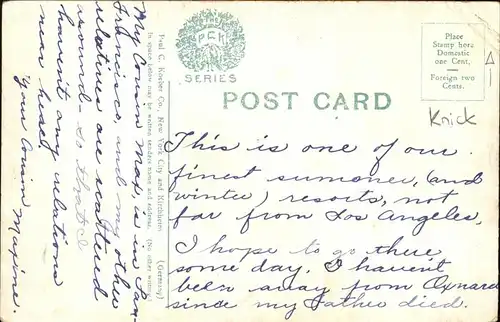 THE
P.C.K.
SERIES
POST CARD
Place
Stamp here
Domestic
one Cent.
Foreign two
Cents.
Knick
Paul C. Koeber Co., New York City and Kirchheim (Germany)
In space below may be written senders name and address. (No other writing)
This is one of our
finest summer, (and
winter) resorts, not
far from Los Angeles.
I hope to go there
some day. I haven't
been away from Oxnard
since my father died.
My Cousin Max, is in San-
Francisco, and my other
relatives are scattered
around so that I
haven't any relations
near here.
Your Cousin Maxine.